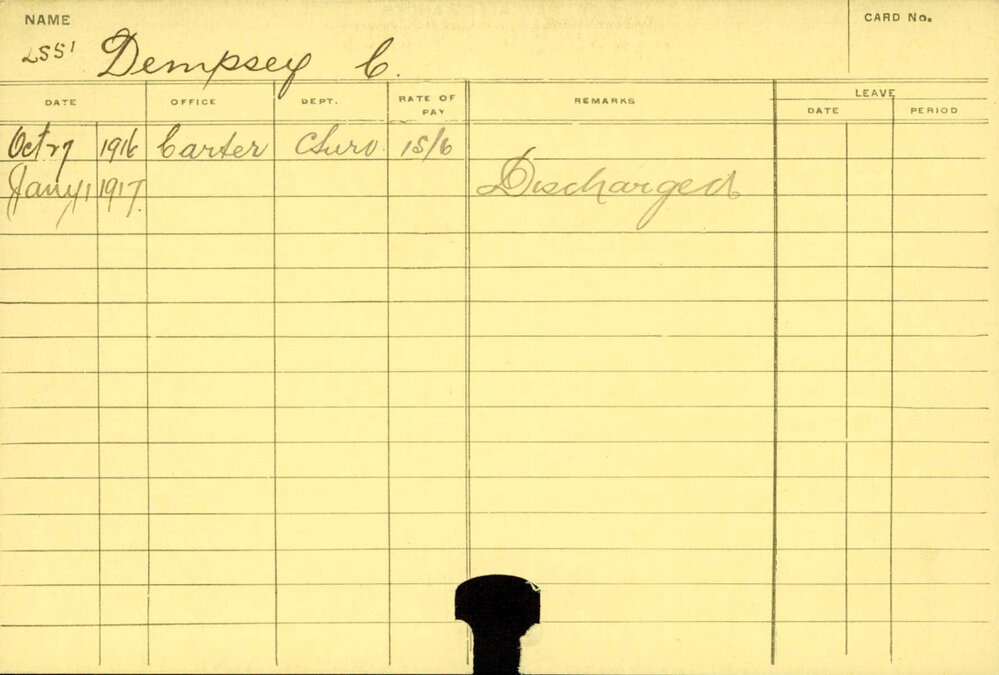 NAME
CARD No.
2551 Dempsey C.
DATE OFFICE DEPT. RATE OF PAY REMARKS LEAVE
DATE PERIOD
Oct 27 1916 Carter 15/6
Jany 1 1917. Discharged